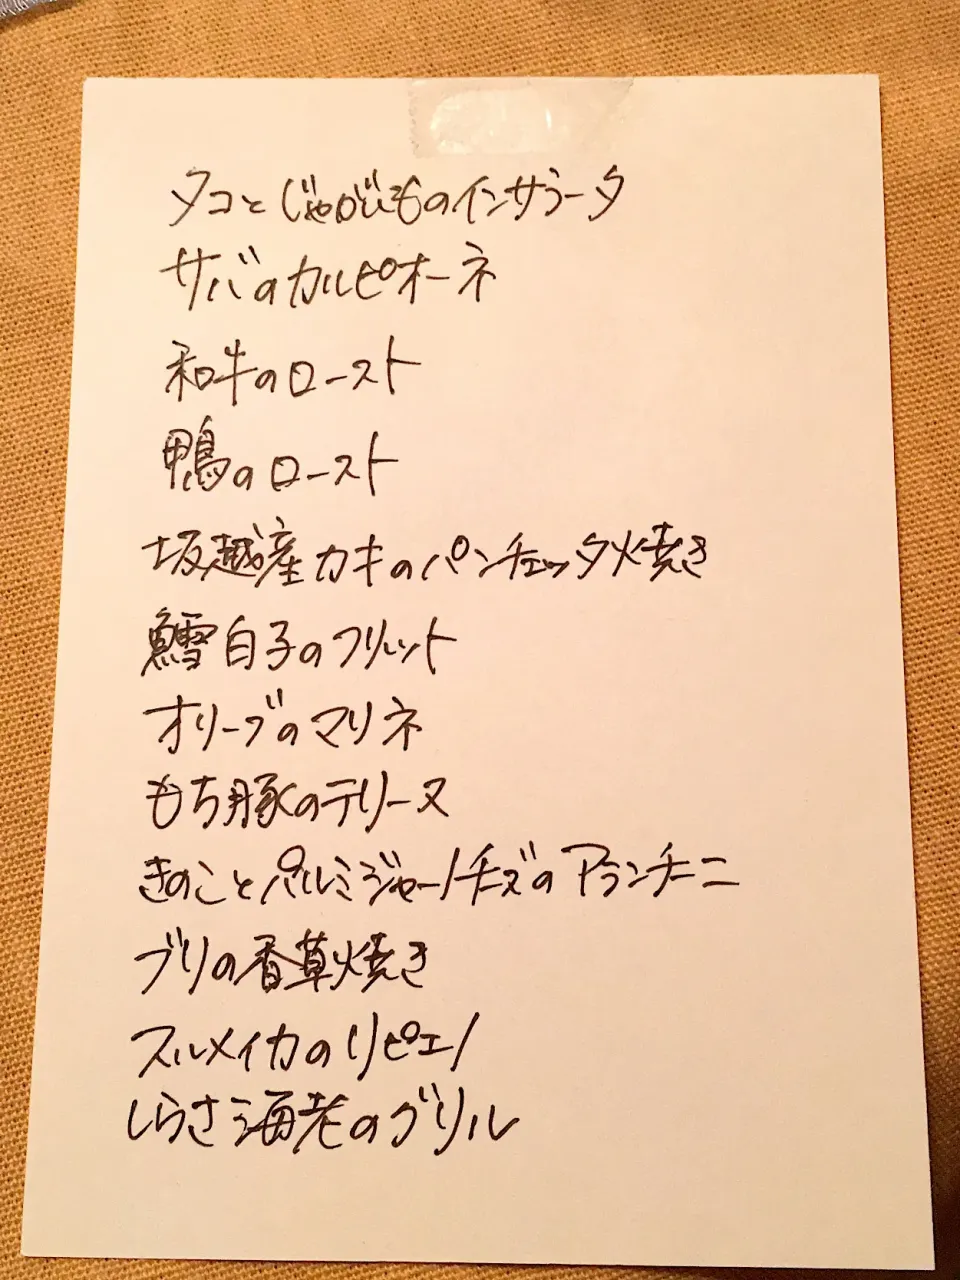 タコとじゃがいものインサラータ
サバのカルピオーネ
和牛のロースト
鴨のロースト
坂越産カキのパンチェッタ焼き
鱈白子のフリット
オリーブのマリネ
もち豚のテリーヌ
きのことパルミジャーノチーズのアランチーニ
ブリの香草焼き
スルメイカのリピエノ
しらさ海老のグリル